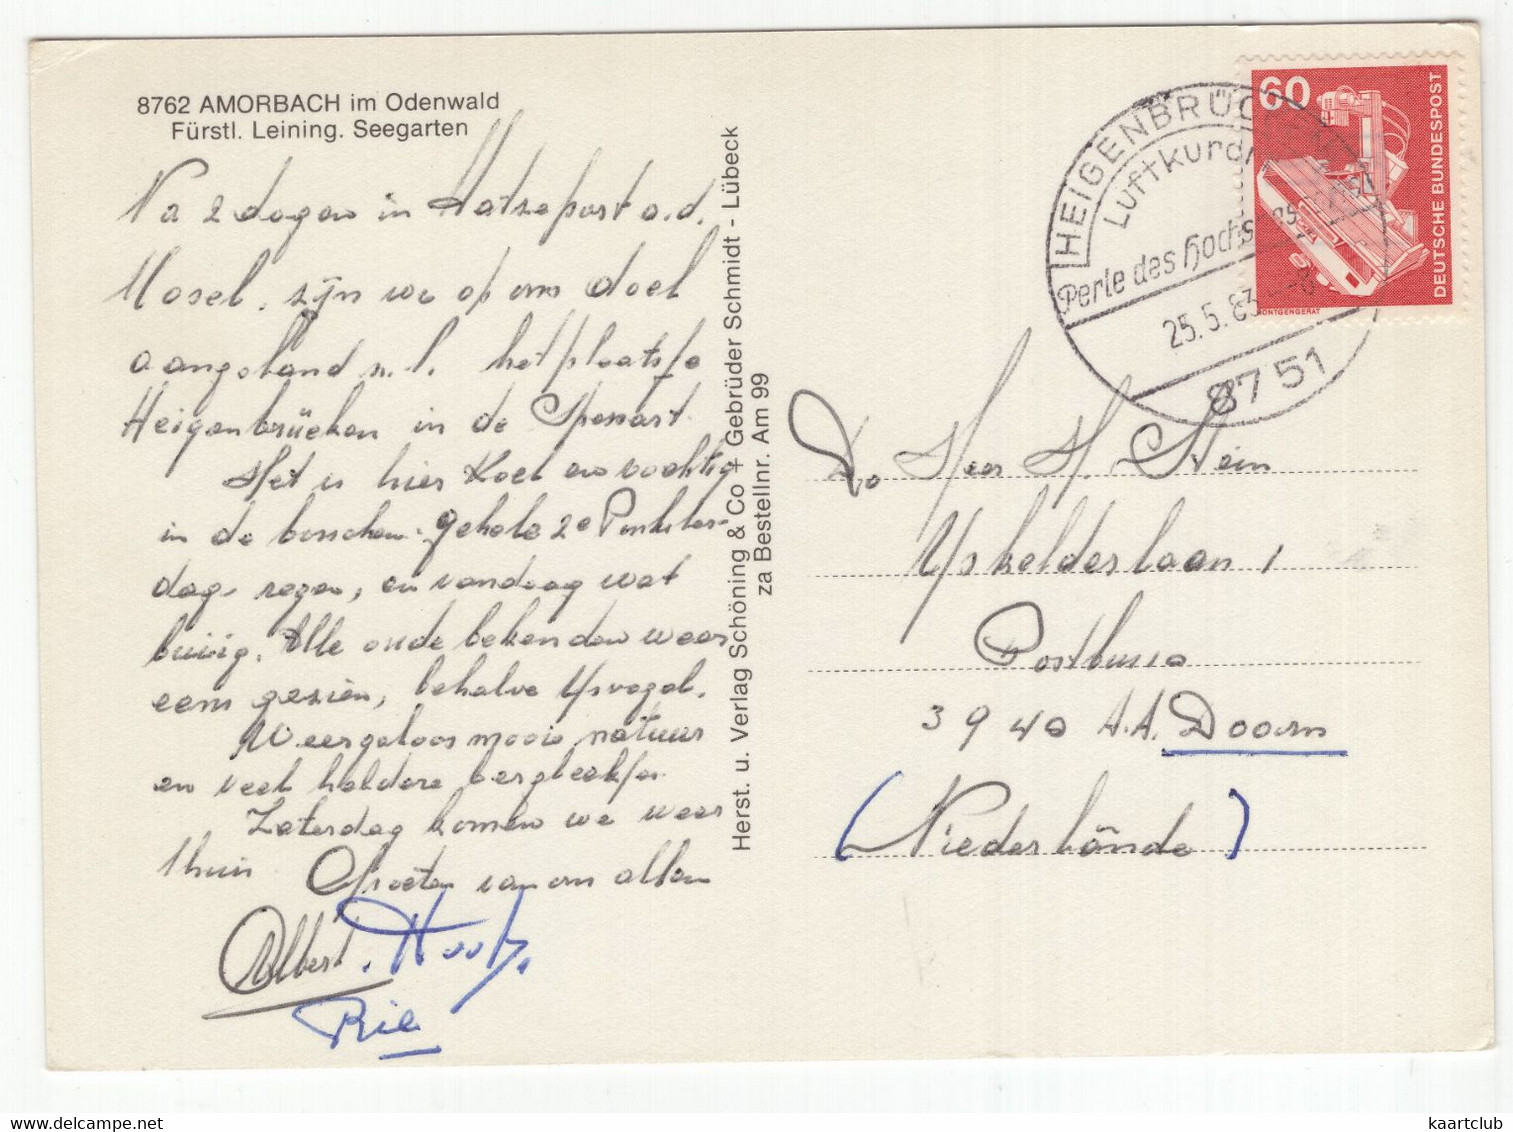 8762 AMORBACH im Odenwald
Fürstl. Leining. Seegarten
Na 2 dagen in Hatzeport a.d.
Mosel, zijn we op ons doel
aangeland n.l. het plaatsje
Heigenbrücken in de Spessart.
Het is hier koel en vochtig
in de bosschen. Gehele 2e Pinkster-
dag regen, en vandaag wat
buiig. Alle oude bekenden weer
eens gezien, behalve IJsvogel.
Weergeloos mooie natuur
en veel heldere bergbeekjes.
Zaterdag komen we weer
thuis Groeten van ons allen
Albert.
Rie
Herst. u. Verlag Schöning & Co + Gebrüder Schmidt - Lübeck
za Bestellnr. Am 99
HEIGENBRÜC
Luftkuror
Perle des Hochs
25.5.83
8751
60
DEUTSCHE BUNDESPOST
RÖNTGENGERÄT
De Heer H. Stein
Postbus
3940 A.A. Doorn
(Niederlände)
kaartclub